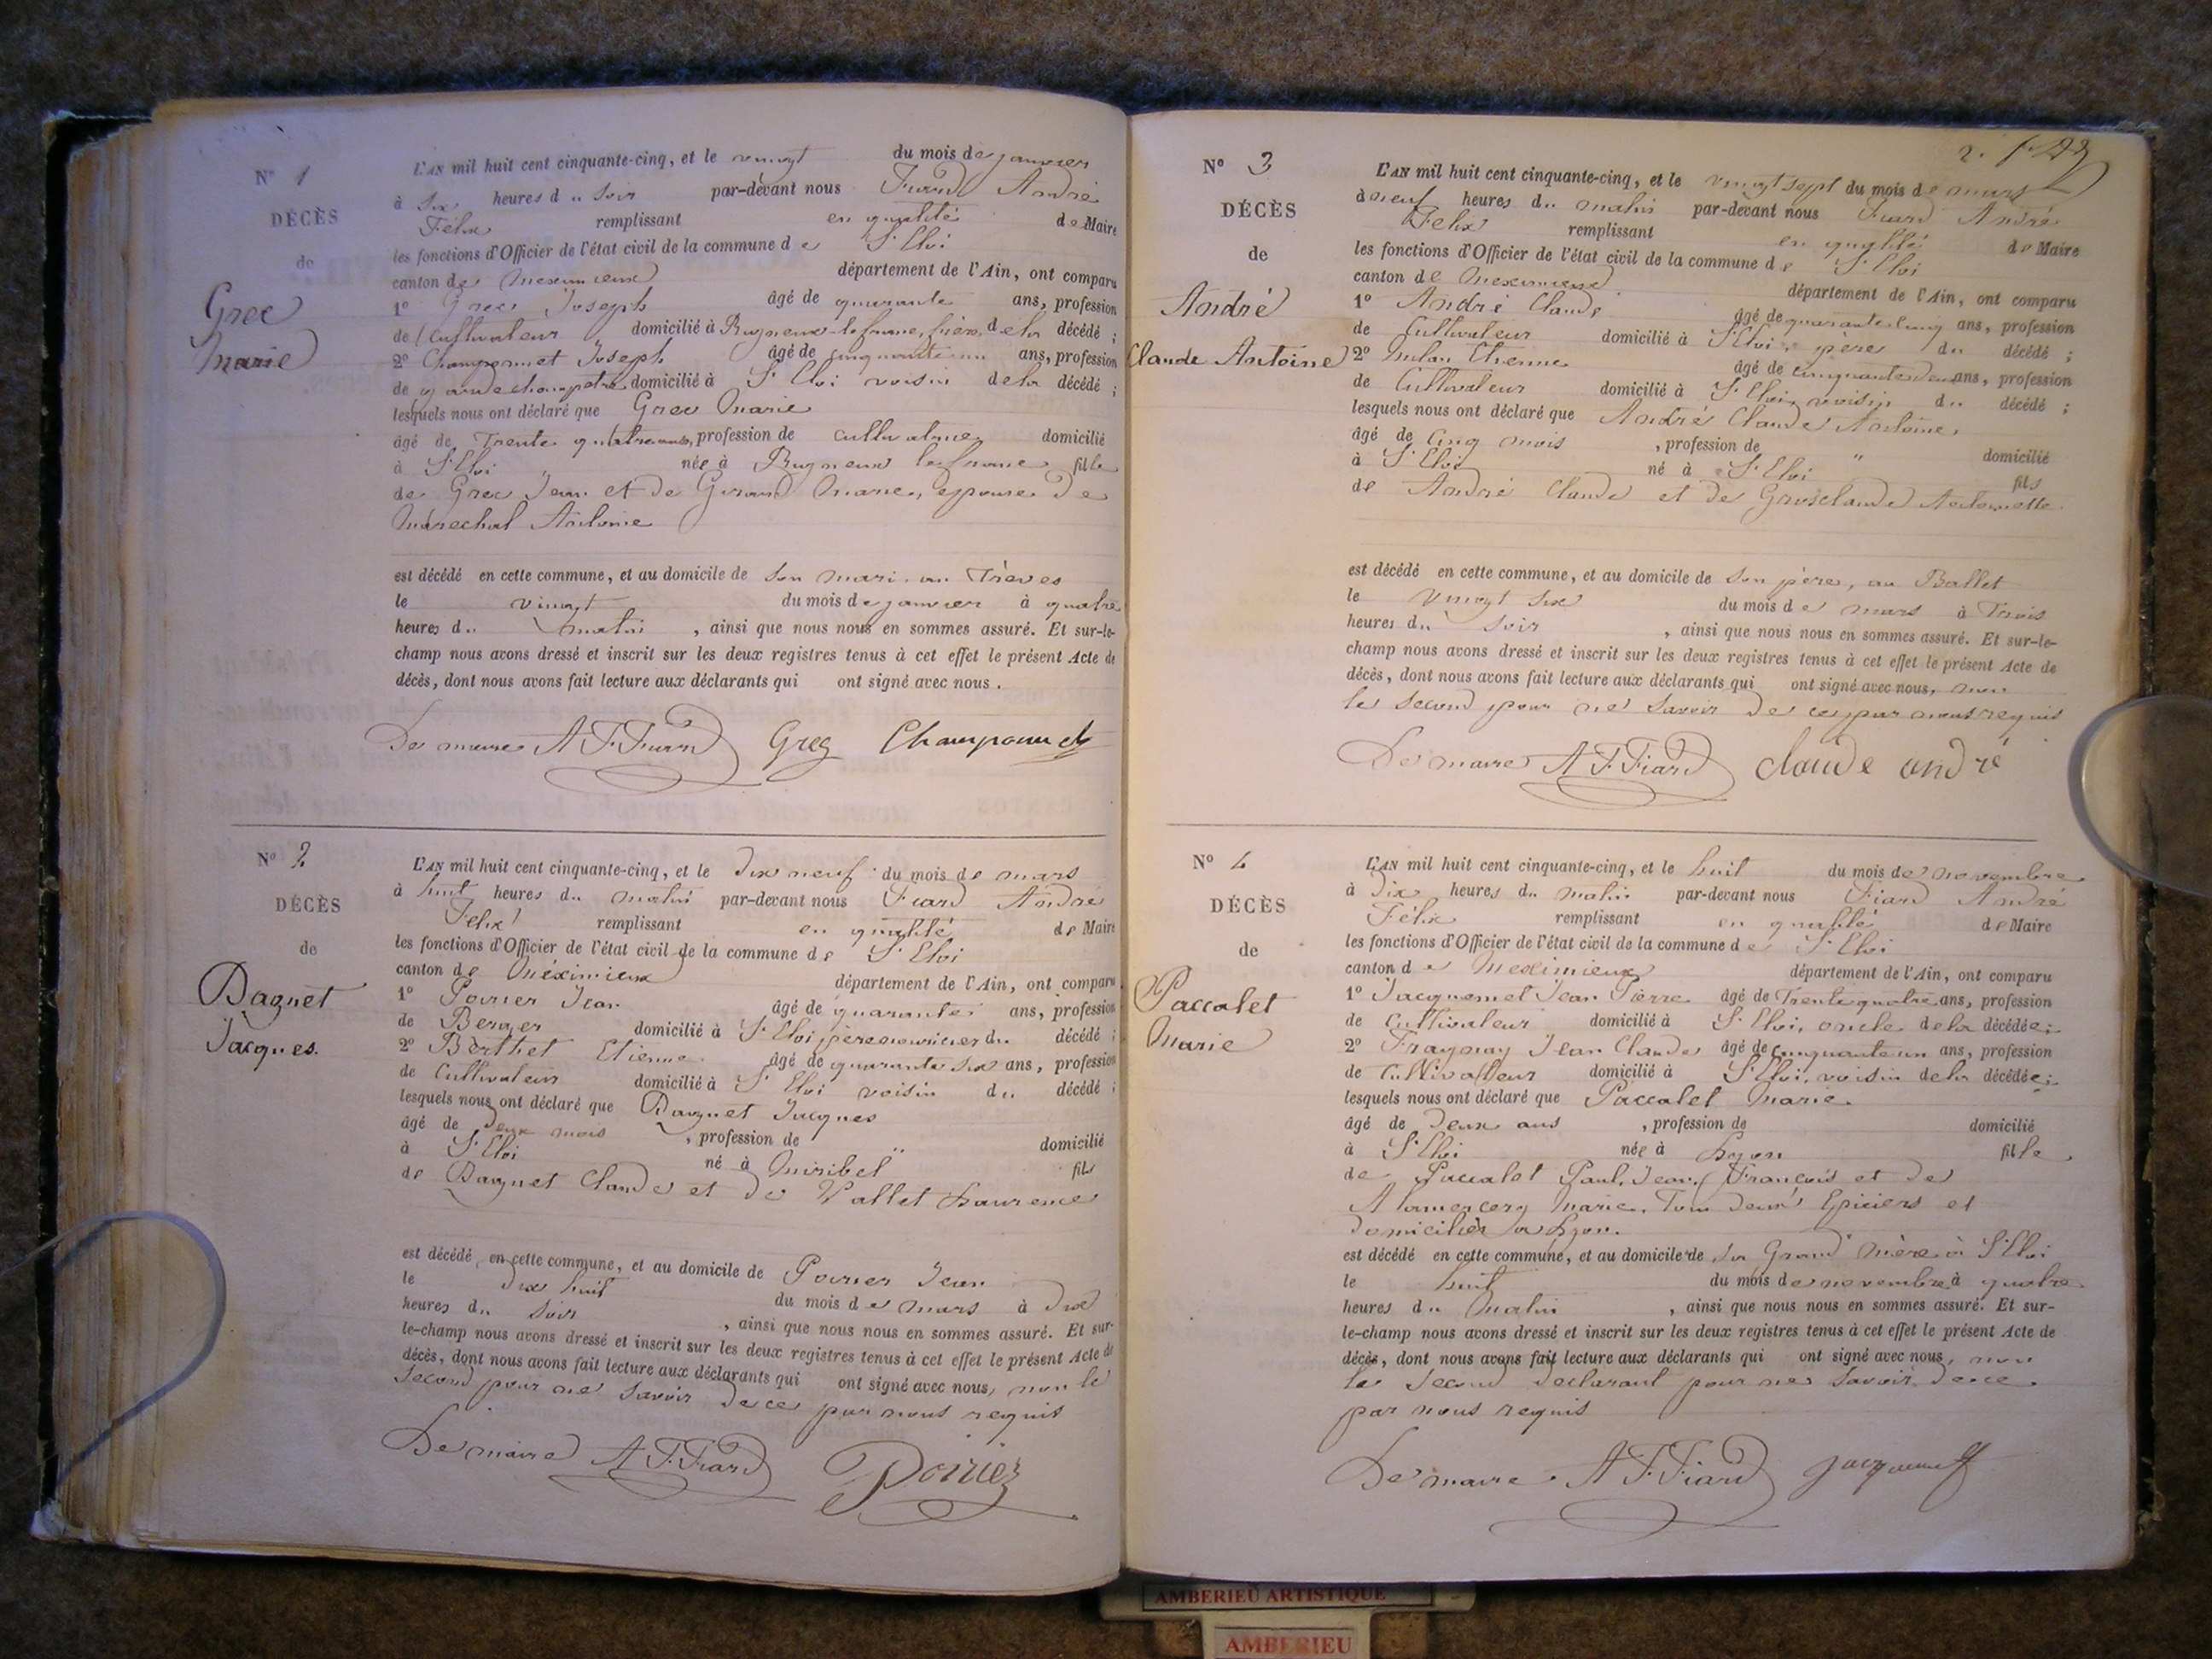 N° 1
DÉCÈS
de
Grec
Marie
L'AN mil huit cent cinquante-cinq, et le vingt du mois de janvier
à six heures du soir par-devant nous Fiard André
Félix remplissant en qualité de Maire
les fonctions d'Officier de l'état civil de la commune de St Eloi
canton de Meximieux département de l'Ain, ont comparu
1° Grec Joseph âgé de quarante ans, profession
de Cultivateur domicilié à Rigneux le franc, frère de la décédé ;
2° Champommet Joseph âgé de cinquante un ans, profession
de garde champetre domicilié à St Eloi voisin de la décédé ;
lesquels nous ont déclaré que Grec Marie
âgé de Trente quatre ans, profession de cultivatrice domicilié
à St Eloi née à Rigneux le franc fille
de Grec Jean et de Girand Marie, epouse de
Maréchal Antoine
est décédé en cette commune, et au domicile de son mari au Trèves
le vingt du mois de janvier à quatre
heures du matin , ainsi que nous nous en sommes assuré. Et sur-le-
champ nous avons dressé et inscrit sur les deux registres tenus à cet effet le présent Acte de
décès, dont nous avons fait lecture aux déclarants qui ont signé avec nous.
Le maire A F Fiard Greg Champoumet
N° 2
DÉCÈS
de
Daguet
Jacques.
L'AN mil huit cent cinquante-cinq, et le dix neuf du mois de mars
à huit heures du matin par-devant nous Fiard André
Felix remplissant en qualité de Maire
les fonctions d'Officier de l'état civil de la commune de St Eloi
canton de Méximieux département de l'Ain, ont comparu
1° Poirier Jean âgé de quarante ans, profession
de Berger domicilié à St Eloi, père nouricier du décédé ;
2° Berthet Etienne âgé de quarante six ans, profession
de Cultivateur domicilié à St Eloi voisin du décédé ;
lesquels nous ont déclaré que Daguet Jacques
âgé de Deux mois , profession de " domicilié
à St Eloi né à Miribel fils
de Daguet Claude et de Vallet Laurence
est décédé en cette commune, et au domicile de Poirier Jean
le dix huit du mois de mars à dix
heures du soir , ainsi que nous nous en sommes assuré. Et sur-
le-champ nous avons dressé et inscrit sur les deux registres tenus à cet effet le présent Acte de
décès, dont nous avons fait lecture aux déclarants qui ont signé avec nous, non le
second pour ne savoir de ce par nous requis
Le maire A F. Fiard Poirier
2.
N° 3
DÉCÈS
de
André
Claude Antoine
L'AN mil huit cent cinquante-cinq, et le vingt sept du mois de mars
à neuf heures du matin par-devant nous Fiard André
Felix remplissant en qualité de Maire
les fonctions d'Officier de l'état civil de la commune de St Eloi
canton de Meximieux département de l'Ain, ont comparu
1° André Claude âgé de quarante cinq ans, profession
de Cultivateur domicilié à St Eloi, père du décédé ;
2° Etienne âgé de cinquante deux ans, profession
de Cultivateur domicilié à St Eloi, voisin du décédé ;
lesquels nous ont déclaré que André Claude Antoine,
âgé de Cinq mois , profession de " domicilié
à St Eloi né à St Eloi fils
de André Claude et de Grosclaude Antoinette
est décédé en cette commune, et au domicile de son père, au Ballet
le vingt six du mois de mars à Trois
heures du soir , ainsi que nous nous en sommes assuré. Et sur-le-
champ nous avons dressé et inscrit sur les deux registres tenus à cet effet le présent Acte de
décès, dont nous avons fait lecture aux déclarants qui ont signé avec nous, non
le second pour ne savoir de ce par nous requis
Le maire A F Fiard claude andré
N° 4
DÉCÈS
de
Paccalet
Marie
L'AN mil huit cent cinquante-cinq, et le huit du mois de novembre
à dix heures du matin par-devant nous Fiard André
Félix remplissant en qualité de Maire
les fonctions d'Officier de l'état civil de la commune de St Eloi
canton de Meximieux département de l'Ain, ont comparu
1° Jacquemet Jean Pierre âgé de Trente quatre ans, profession
de Cultivateur domicilié à St Eloi, oncle de la décédée ;
2° Jean Claude âgé de cinquante un ans, profession
de Cultivateur domicilié à St Eloi, voisin de la décédée ;
lesquels nous ont déclaré que Paccalet Marie.
âgé de Deux ans , profession de domicilié
à St Eloi née à Lyon fille
de Paccalet Paul, Jean, François et de
Marie. Tous deux Epiciers et
domiciliés à Lyon.
est décédé en cette commune, et au domicile de sa Grand mère à St Eloi
le huit du mois de novembre à quatre
heures du Matin , ainsi que nous nous en sommes assuré. Et sur-
le-champ nous avons dressé et inscrit sur les deux registres tenus à cet effet le présent Acte de
décès, dont nous avons fait lecture aux déclarants qui ont signé avec nous, non
le second declarant pour ne savoir de ce
par nous requis
Le maire A F. Fiard Jacquemet
AMBERIEU ARTISTIQUE
AMBERIEU